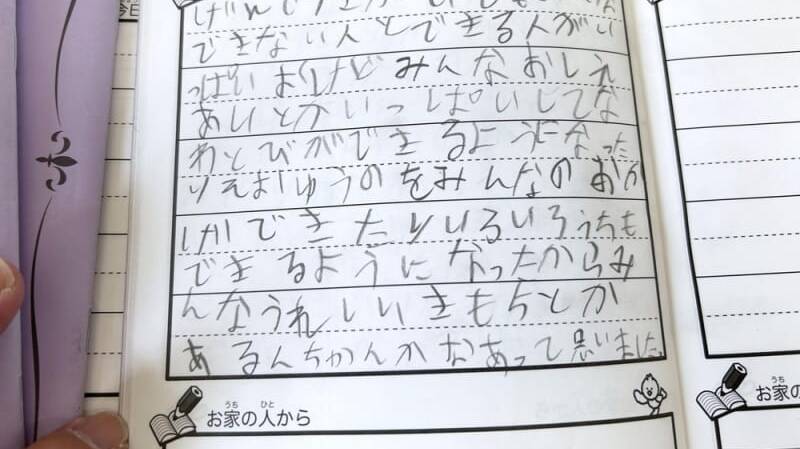 できない人とできる人がい
っぱいおけどみんなおしえ
あいとかいっぱいしてな
わとびができるようになった
りそおじゅうのをみんなのおか
げかできたりいるいろうちも
できるようになったからみ
んなうれしいきもちとか
あるんちゃんかなあって思いました。
お家の人から
うち
ひと
お家の
うち
今日